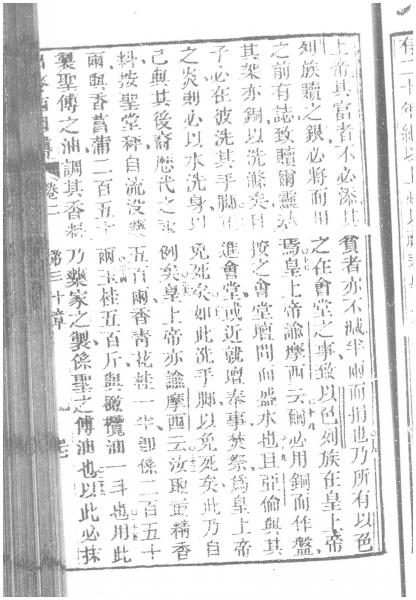 上帝其富者不必添其貧者亦不減半兩而捐也乃所有以色
列族贖之銀必將而用之在會堂之事致以色列族在皇上帝
之前有誌致贖爾靈焉皇上帝諭摩西云爾必用銅而作盤
其架亦銅以洗滌矣且按之會堂壇間而盛水也且亞倫與其
子必在彼洗其手脚進會堂或近就壇奉事焚祭爲皇上帝
之炎則必以水洗身以免死矣如此洗手脚以免死矣此乃自
己與其後裔歷代之永例矣皇上帝亦諭摩西云汝取最精香
料按聖堂秤自流沒藥五百兩香青花桂一半卽係二百五十
兩與香菖蒲二百五十兩玉桂五百斤與橄欖油一斗也用此
製聖傅之油調其香料乃藥家之製係聖之傅油也以此必抹
出麥西國傳 卷二 第三十章